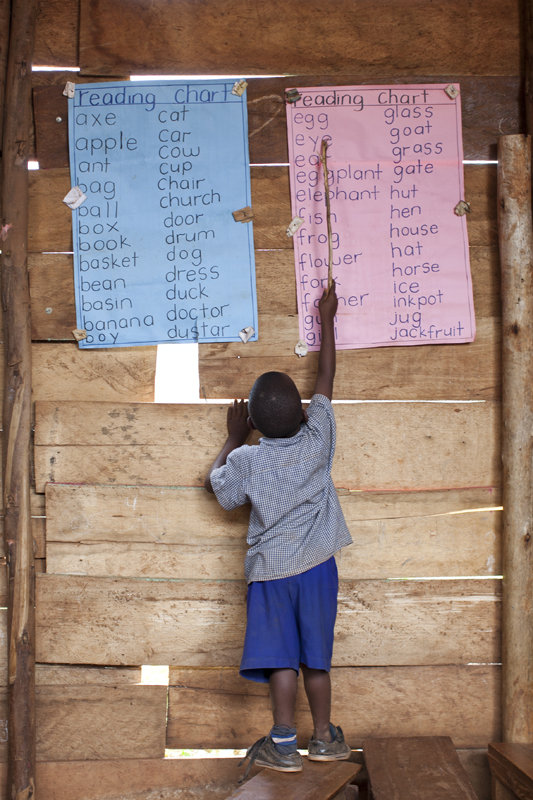 reading chart
axe
apple
ant
bag
ball
box
book
basket
bean
basin
banana
boy
cat
car
cow
cup
chair
church
door
drum
dog
dress
duck
doctor
dustar
reading chart
egg
eye
eggplant
elephant
fish
frog
flower
fork
farmer
girl
glass
goat
grass
gate
hut
hen
house
hat
horse
ice
inkpot
jug
jackfruit